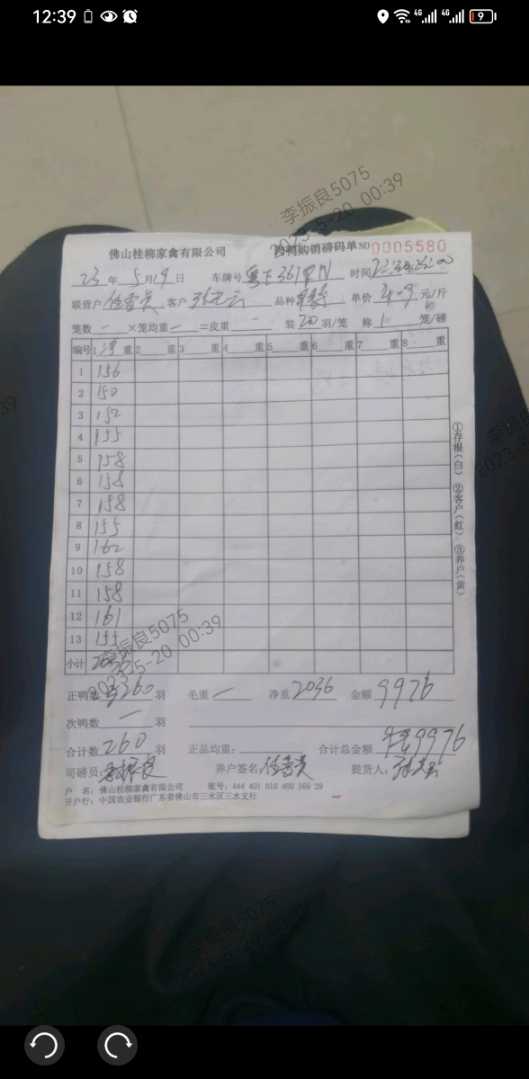 12:39
4G 4G 9
李振良5075
2023-5-20 00:39
佛山桂柳家禽有限公司 鸭购销磅码单 NO 0005580
23 年 5 月 19 日 车牌号 时间
客户 品种 单价 4.9 元/斤
笼数 一 ×笼均重 一 =皮重 一 装 20 羽/笼 称 1 笼/磅
编号 1 净 重 2 重 3 重 4 重 5 重 6 重 7 重 8 重
1 156
2 150
3 152
4 155
5 158
6 158
7 158
8 155
9 162
10 158
11 158
12 161
13 155
小计 2036
①存根(白) ②客户(红) ③养户(黄)
李振良5075
2023-5-20 00:39
正鸭数 260 羽 毛重 一 净重 2036 金额 9976
次鸭数 一 羽
合计数 260 羽 正品均重: 合计总金额 9976
司磅员: 李振良 养户签名: 提货人:
户 名:佛山桂柳家禽有限公司
开户行:中国农业银行广东省佛山市三水区三水支行
李振良5075